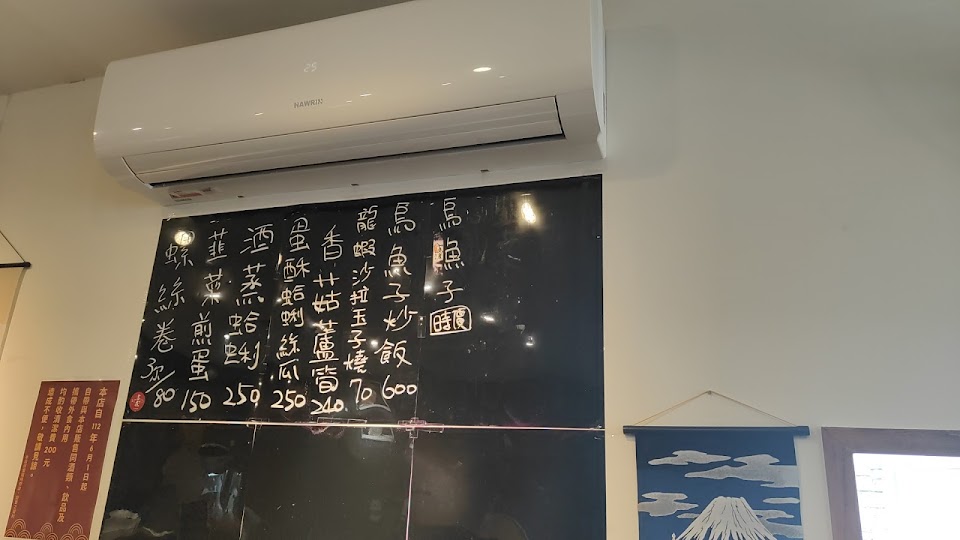 29
HAWRIN
烏魚子 時價
烏魚子炒飯 600
龍蝦沙拉玉子燒 70
香菇蘆筍 240
蛋酥蛤蜊絲瓜 250
酒蒸蛤蜊 250
韭菜煎蛋 150
螺絲卷 3入/80
本店自 112 年 6 月 1 日起
自帶與本店販售同酒類、飲品及
攜帶外食內用
均酌收清潔費 200 元
造成不便，敬請見諒。